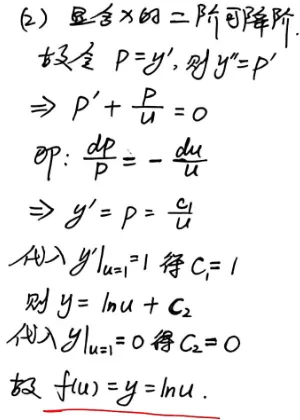 (2) 显含x的二阶可降阶.
故令 P=y', 则y''=P'
⇒ P' + P/u = 0
即: dP/P = - du/u
⇒ y' = P = C₁/u
代入 y'|u=1 = 1 得 C₁=1
则 y = lnu + C₂
代入 y|u=1 = 0 得 C₂=0
故 f(u) = y = lnu.